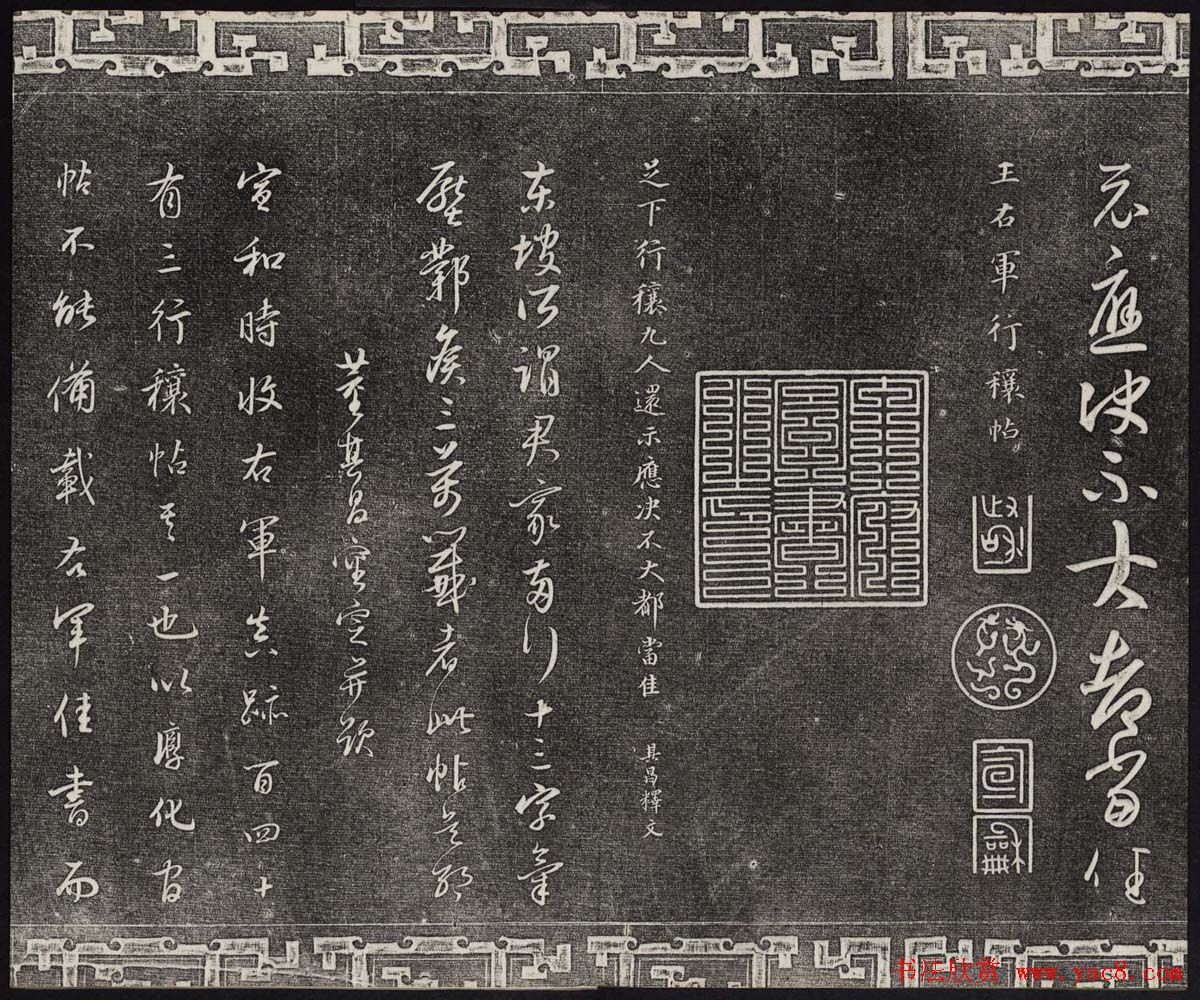 示應決不大都當佳
王右軍行穰帖
政和
宣和
足下行穰九人還示應決不大都當佳 其昌釋文
東坡所謂君家兩行十三字氣
壓鄴侯三萬籤者此帖是耶
董其昌審定并題
宣和時收右軍真跡百四十
有三行穰帖其一也以淳化官
帖不能備載右軍佳書而
书法欣赏 www.yac8.com